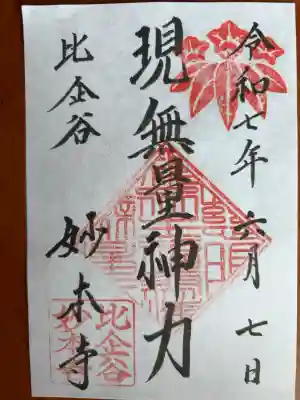 令和七年六月七日
現無量神力
比企谷
妙本寺
比企谷
妙本寺